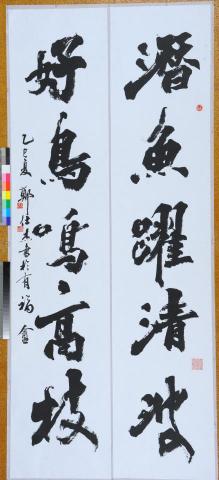 潛魚躍清波
好鳥鳴高枝
乙巳夏 鄭佳志書於有福盦